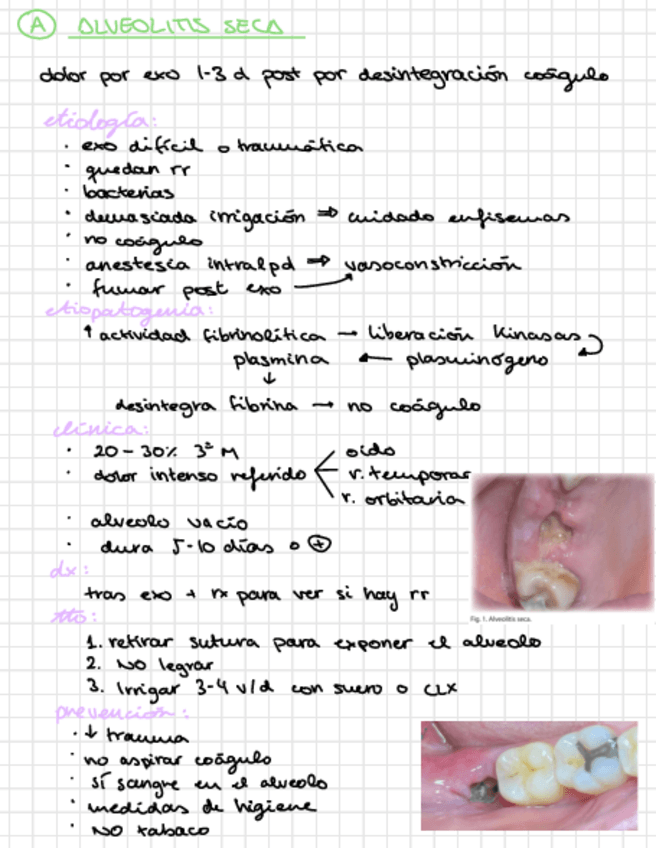 A ALVEOLITIS SECA
dolor por exo 1-3 d post por desintegración coágulo
etiología:
· exo difícil o traumática
· quedan rr
· bacterias
· demasiada irrigación ⇒ cuidado enfisemas
· no coágulo
· anestesia intralpd ⇒ vasoconstricción
· fumar post exo →
etiopatogenia:
↑ actividad fibrinolítica → liberación Kinasas
plasmina ← plasminógeno
↓
desintegra fibrina → no coágulo
clínica:
· 20-30% 3º M
· dolor intenso referido < oído
r. temporal
r. orbitaria
· alveolo vacío
· dura 5-10 días o +
dx:
tras exo + rx para ver si hay rr
Fig. 1. Alveolitis seca.
tto:
1. retirar sutura para exponer el alveolo
2. NO legrar
3. Irrigar 3-4 v/d con suero o CLX
prevención:
· ↓ trauma
· no aspirar coágulo
· sí sangre en el alveolo
· medidas de higiene
· NO tabaco